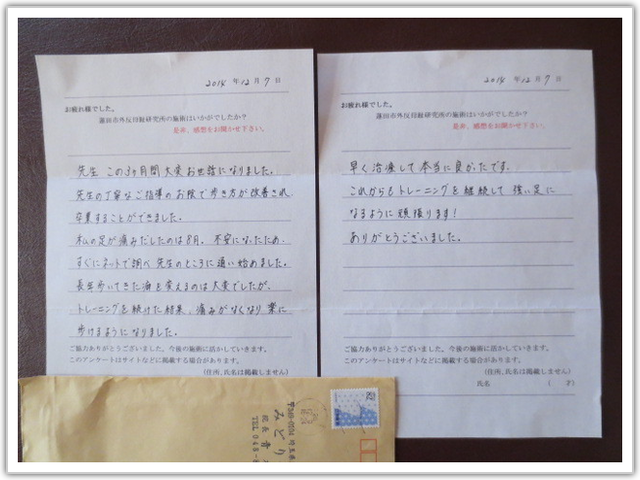 2015 年 12 月 7 日
お疲れ様でした。
蓮田市外反母趾研究所の施術はいかがでしたか？
是非、感想をお聞かせ下さい。
先生 この3ヶ月間大変お世話になりました。
先生の丁寧なご指導のお陰で歩き方が改善され、
卒業することができました。
私の足が痛みだしたのは8月。不安になったため、
すぐにネットで調べ 先生のところに通い始めました。
長年歩いてきた癖を変えるのは大変でしたが、
トレーニングを続けた結果、痛みがなくなり 楽に
歩けるようになりました。
ご協力ありがとうございました。今後の施術に活かしていきます。
このアンケートはサイトなどに掲載する場合があります。
(住所、氏名は掲載しません)
2015 年 12 月 7 日
お疲れ様でした。
蓮田市外反母趾研究所の施術はいかがでしたか？
是非、感想をお聞かせ下さい。
早く治療して本当に良かったです。
これからもトレーニングを継続して 強い足に
なるように頑張ります！
ありがとうございました。
ご協力ありがとうございました。今後の施術に活かしていきます。
このアンケートはサイトなどに掲載する場合があります。
(住所、氏名は掲載しません)
氏名 ( 才)
埼玉県
みどり
院長 青
TEL 048-
52